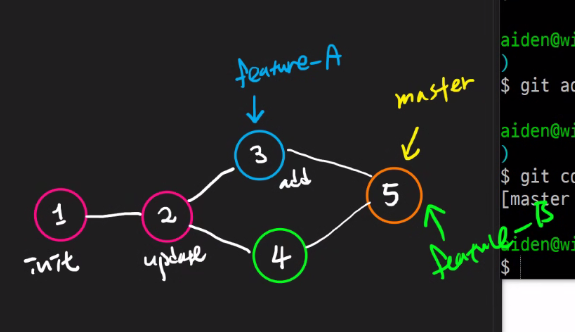 feature-A
master
3
add
1
2
5
init
update
4
feature-B
aiden@wi
)
$ git ad
aiden@wi
)
$ git co
[master
aiden@wi
$